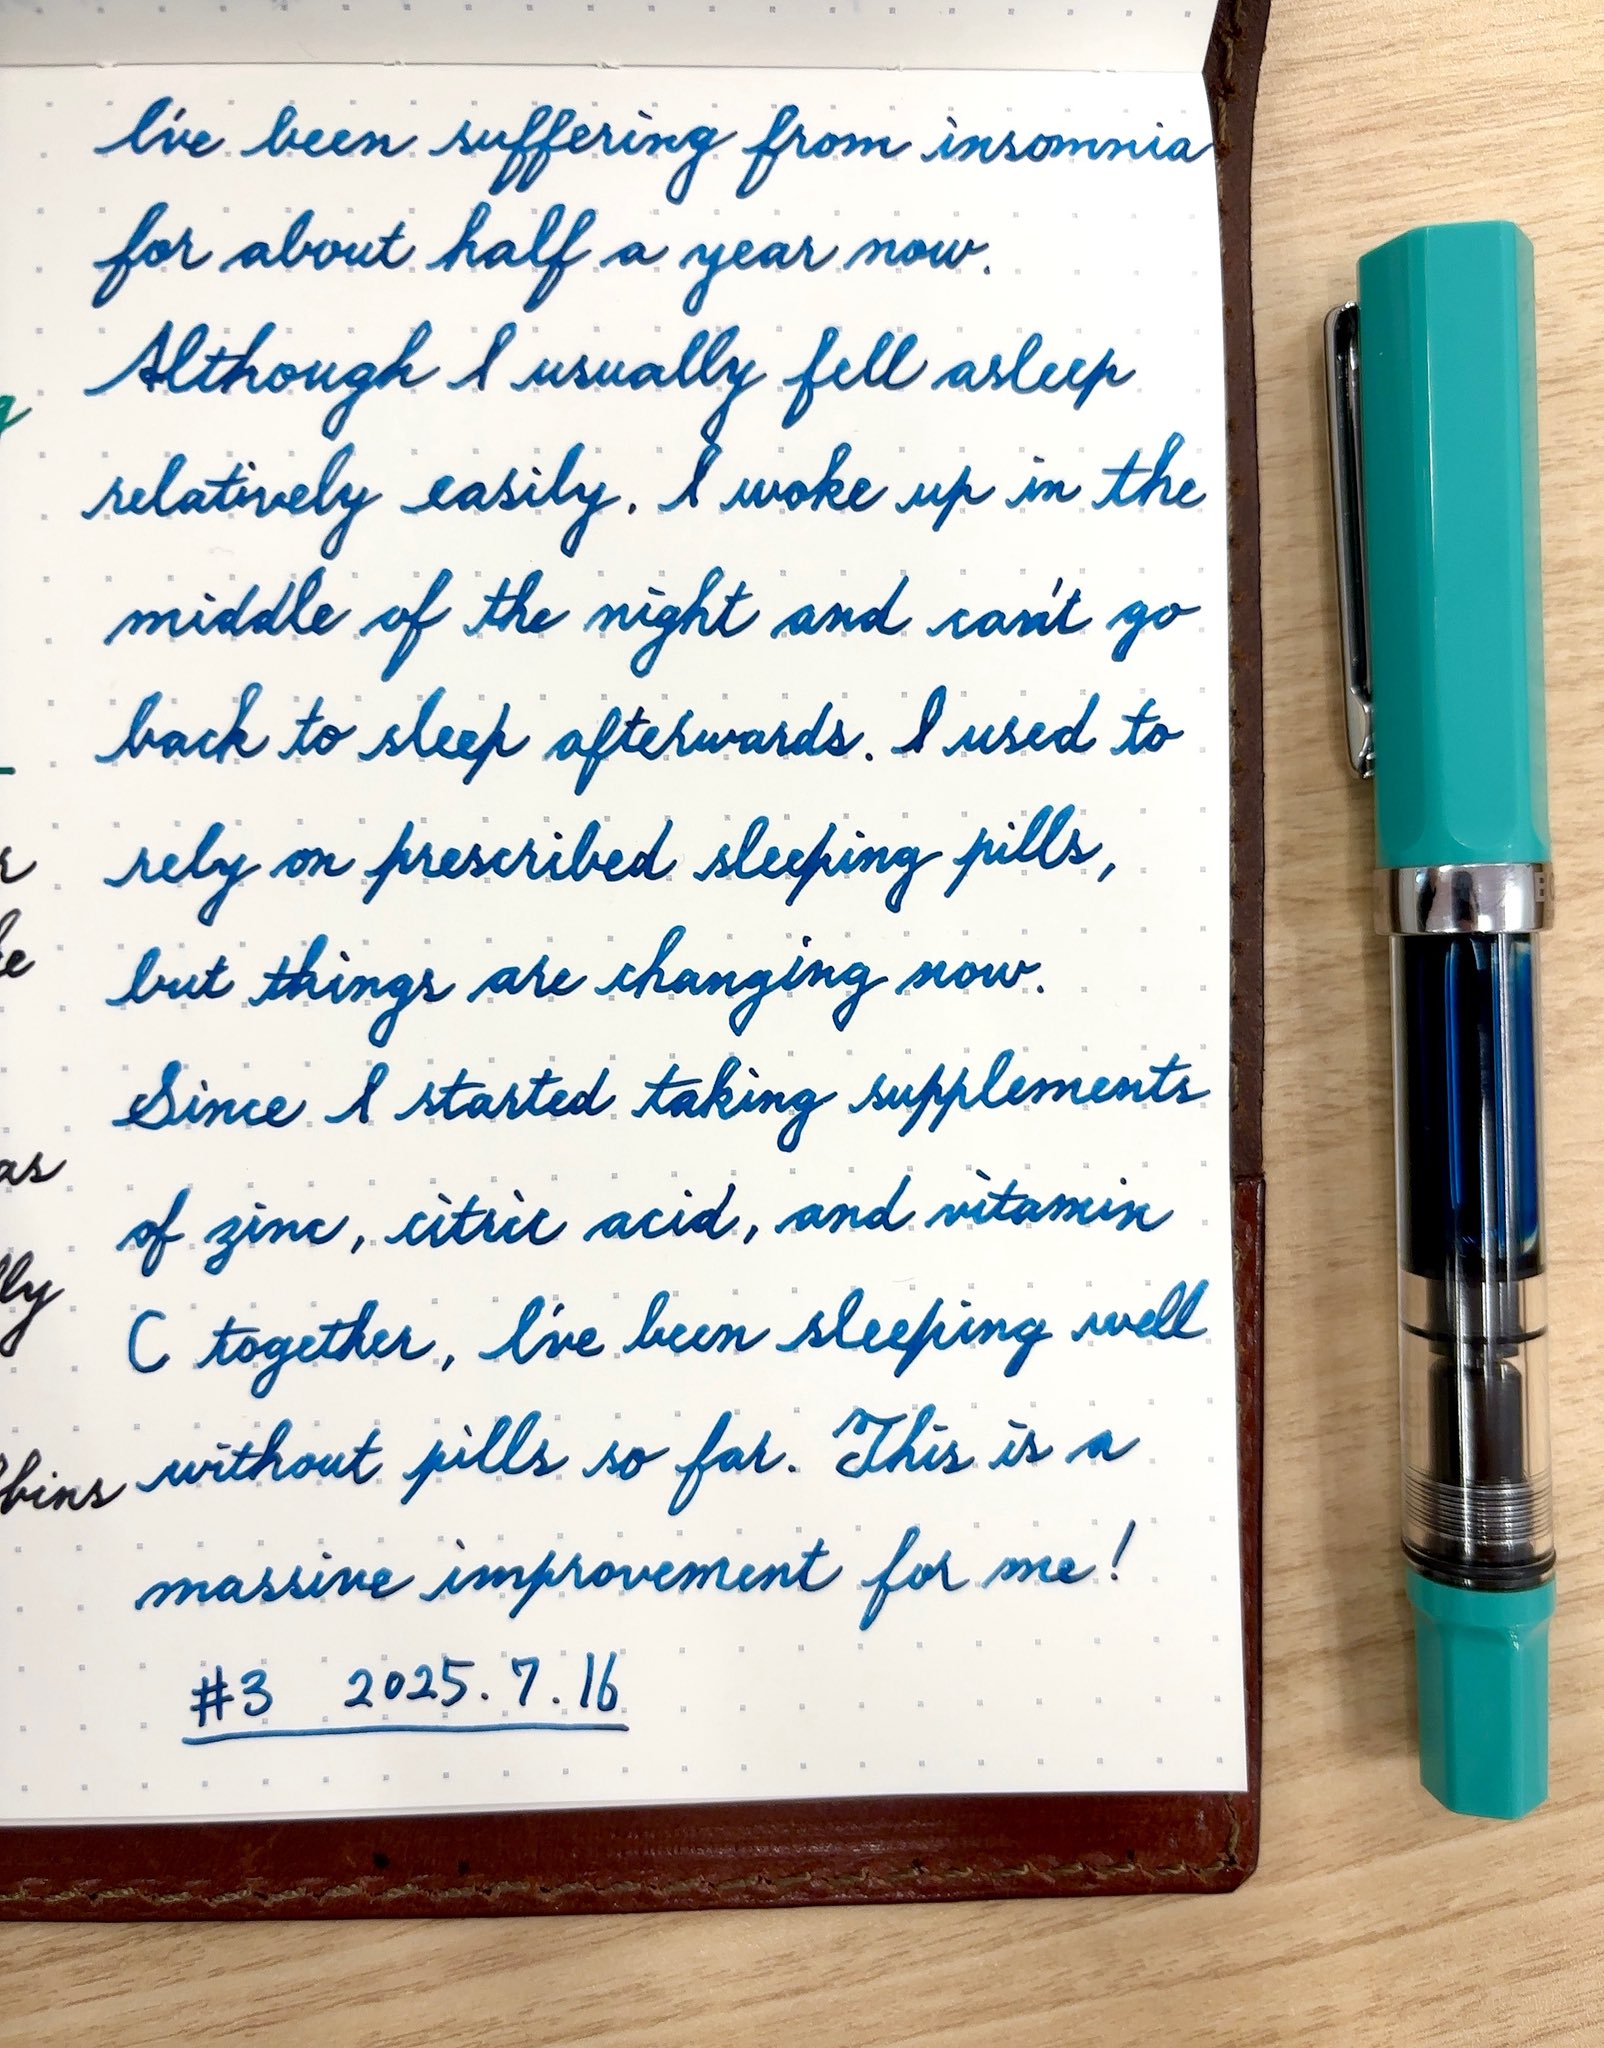 I've been suffering from insomnia
for about half a year now.
Although I usually fell asleep
relatively easily. I woke up in the
middle of the night and can't go
back to sleep afterwards. I used to
rely on prescribed sleeping pills,
but things are changing now.
Since I started taking supplements
of zinc, citric acid, and vitamin
C together, I've been sleeping well
without pills so far. This is a
massive improvement for me!
#3 2025.7.16